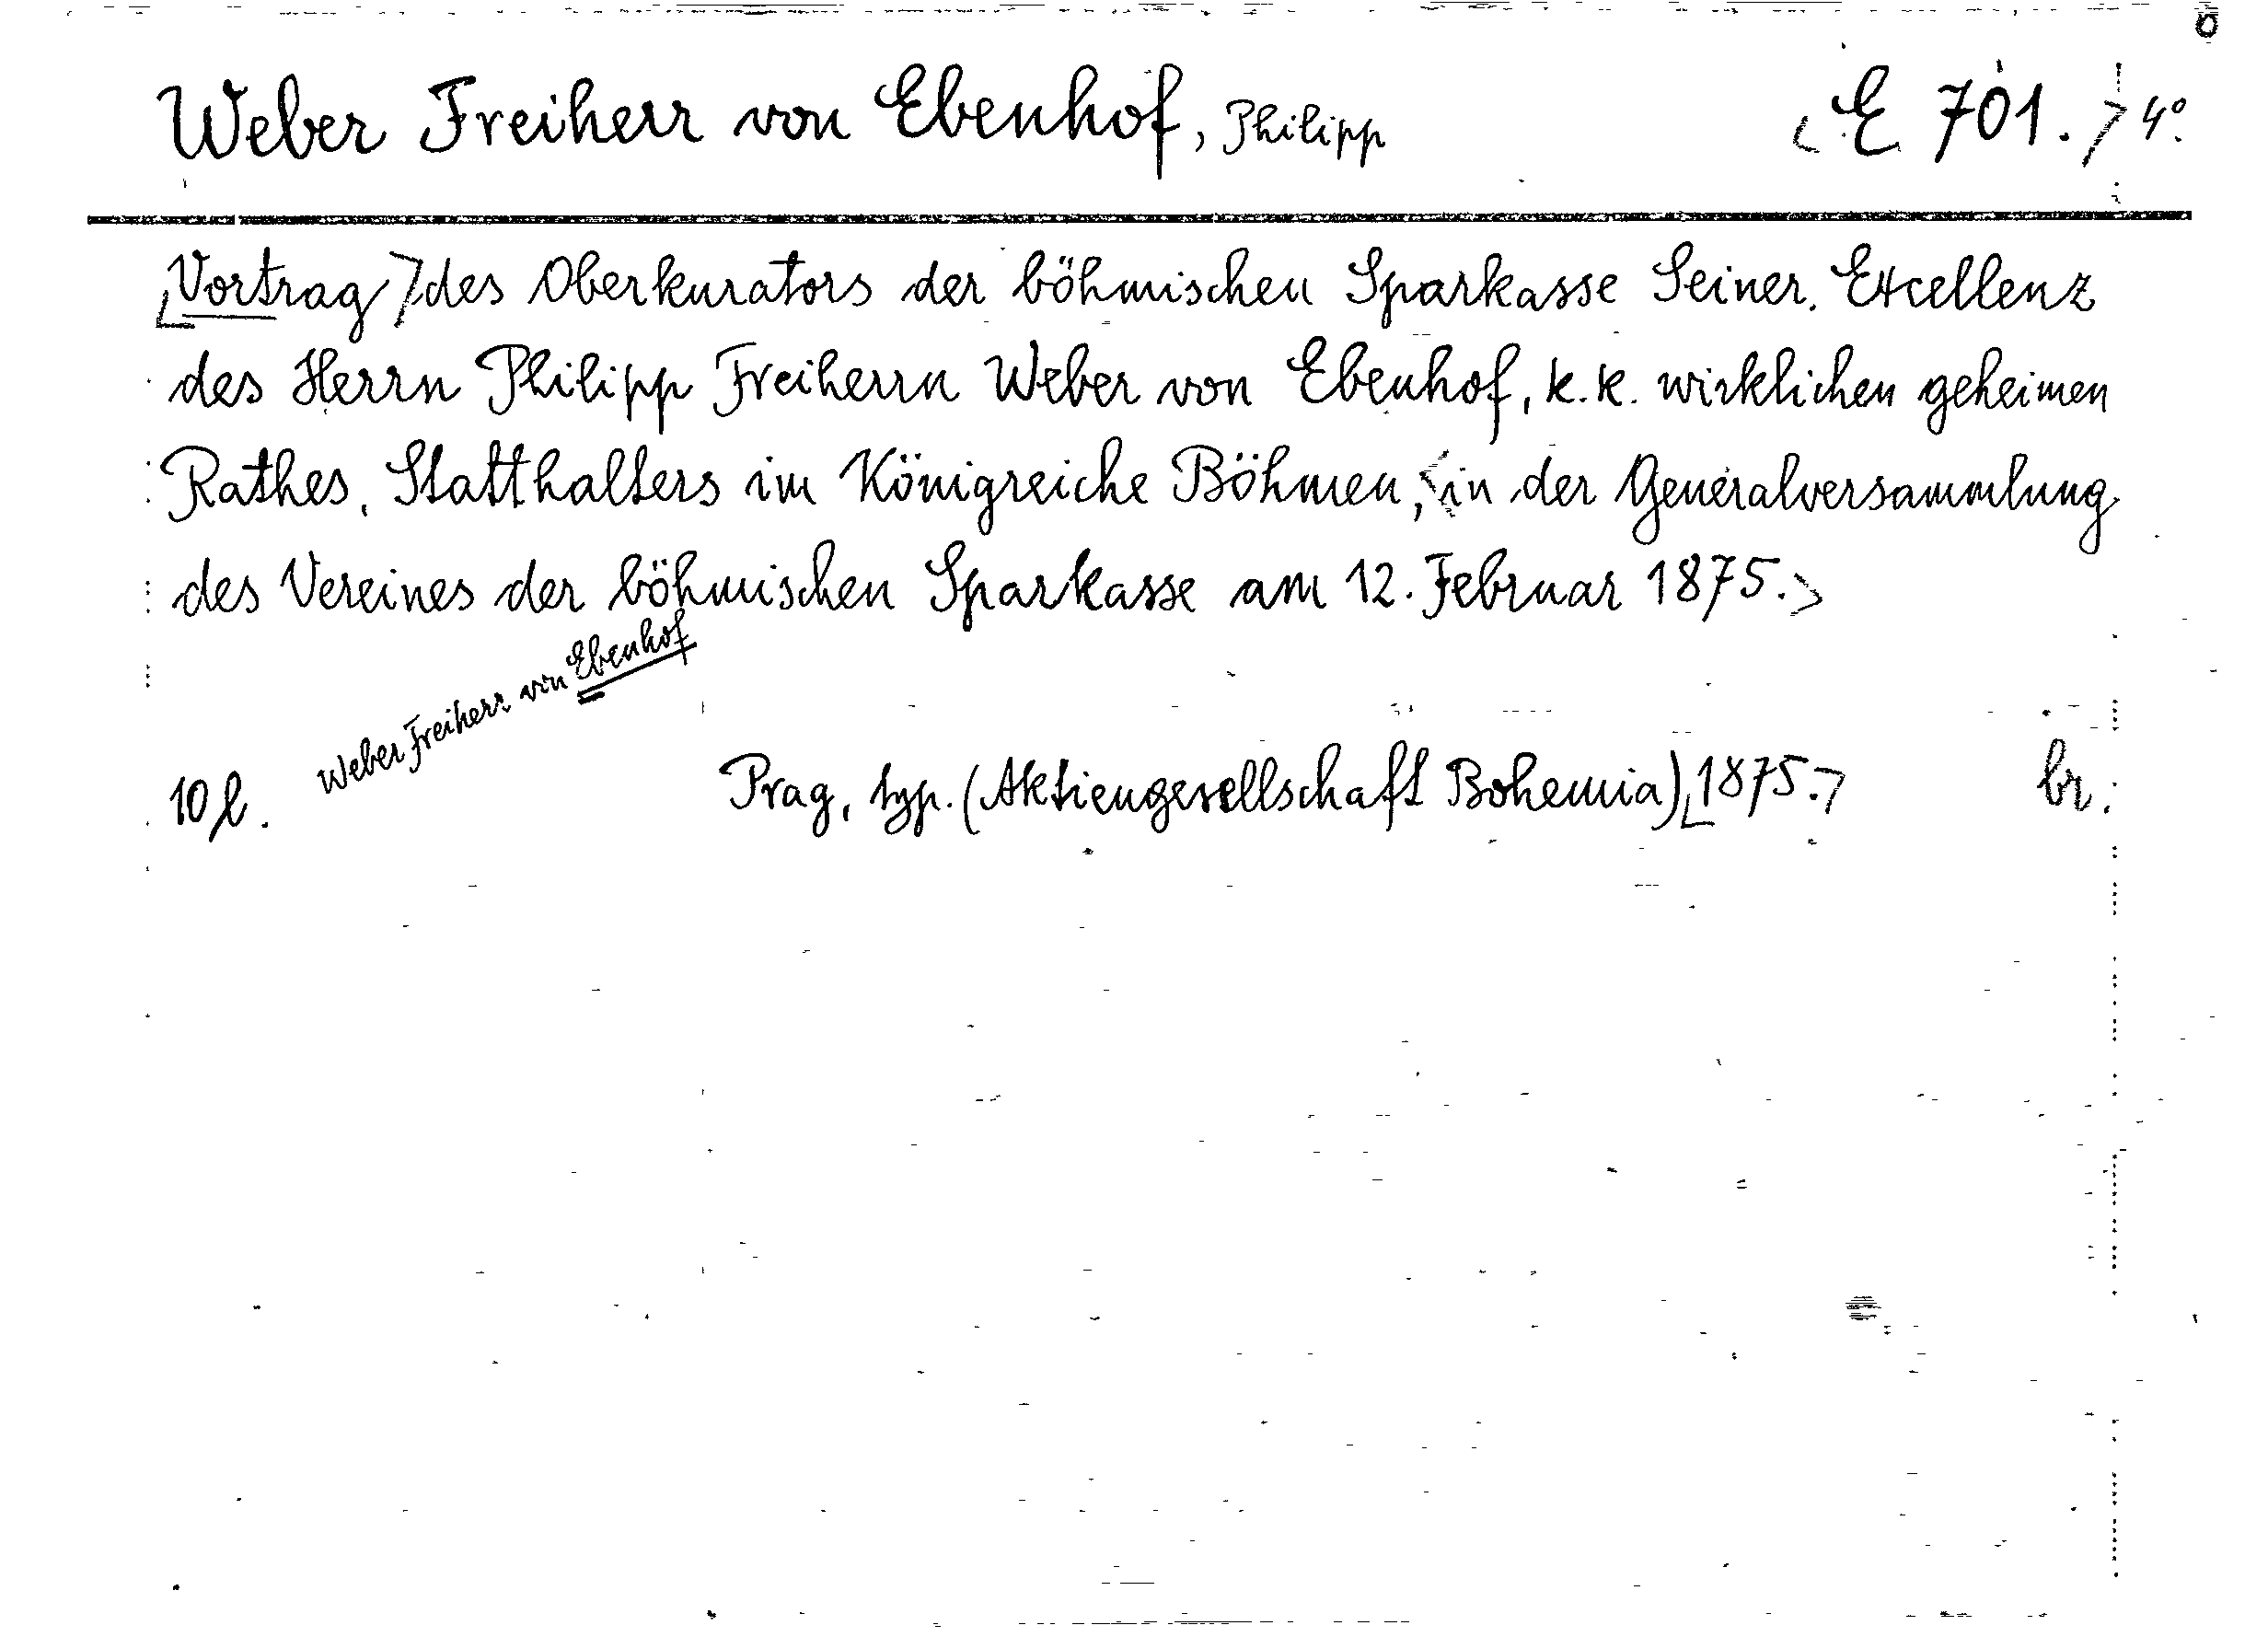 Weber Freiherr von Ebenhof, Philipp <E 701.> 4°.
[Vortrag] des Oberkurators der böhmischen Sparkasse Seiner Excellenz
des Herrn Philipp Freiherrn Weber von Ebenhof, k. k. wirklichen geheimen
Rathes, Statthalters im Königreiche Böhmen, <in der Generalversammlung
des Vereines der böhmischen Sparkasse am 12. Februar 1875.>
Weber Freiherr von Ebenhof
10 l. Prag, typ. (Aktiengesellschaft Bohemia) [1875.] br.